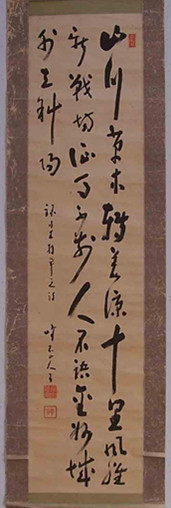 山川草木轉荒涼十里風腥
新戰場征馬不前人不語金州城
外立斜陽